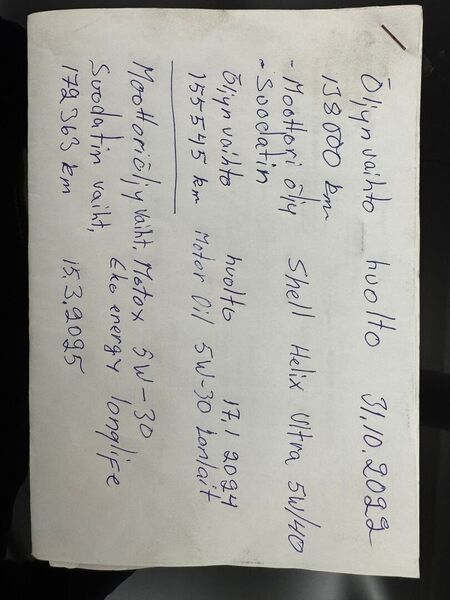 Öljyn vaihto huolto 31.10.2022
138000 km
- Moottori öljy Shell Helix Ultra 5W/40
- Suodatin
Öljyn vaihto huolto 17.1 2024
155545 km Motor Oil 5W-30 Lonlait
Moottoriöljy vaiht. Motox 5W-30
Suodatin vaiht, Eko energy longlife
172363 km 15.3.2025